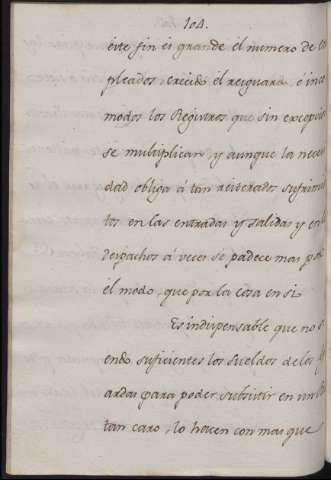 104.
este fin es grande el numero de em
pleados crecido el resguardo, é inco
modos los Registros que sin excepcion
se multiplican, y aunque la necesi
dad obliga á tan reiterados sufrimien
tos en las entradas y salidas y en los
despachos á veces se padece mas por
el modo, que por la cosa en si.
Es indispensable que no si
endo suficientes los sueldos de los gu
ardas para poder subsistir en un Pais
tan caro, lo hacen con mas que